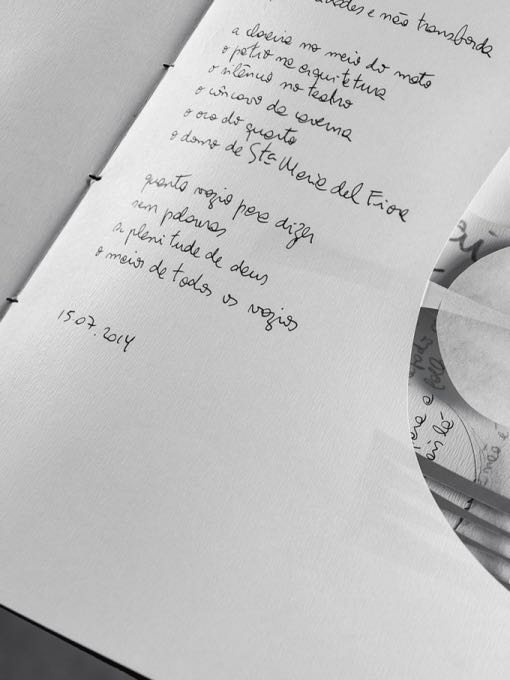 e não transborda
a clareira no meio do mato
o pátio na arquitetura
o silêncio no teatro
o côncavo da caverna
o oco do quarto
o domo de Sta Maria del Fiore
quanto vazio para dizer
sem palavras
a plenitude de deus
o maior de todos os vazios
15.07.2014